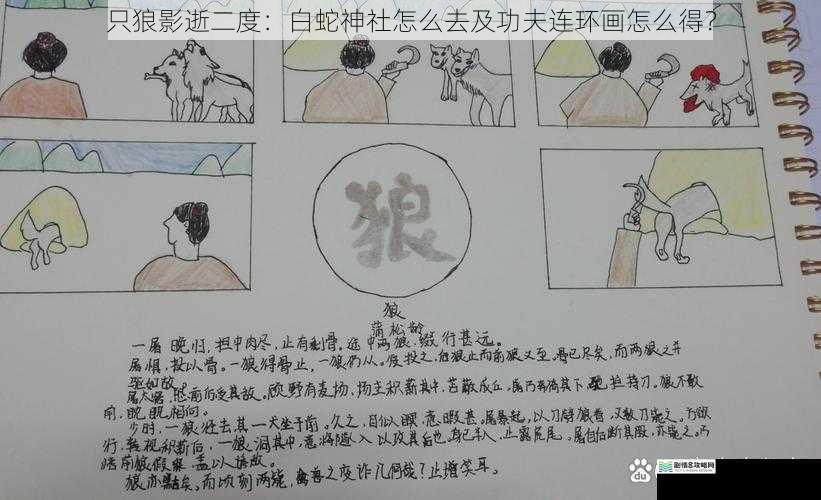 只狼影逝二度：白蛇神社怎么去及功夫连环画怎么得？
狼
狼
蒲松龄
一屠晚归，担中肉尽，止有剩骨。途中两狼，缀行甚远。
屠惧，投以骨。一狼得骨止，一狼仍从。复投之，后狼止而前狼又至。骨已尽矣，而两狼之并
驱如故。
屠大窘，恐前后受其敌。顾野有麦场，场主积薪其中，苫蔽成丘。屠乃奔倚其下，弛担持刀。狼不敢
前，眈眈相向。
少时，一狼径去，其一犬坐于前。久之，目似瞑，意暇甚。屠暴起，以刀劈狼首，又数刀毙之。方欲
行，转视积薪后，一狼洞其中，意将隧入以攻其后也。身已半入，止露尻尾。屠自后断其股，亦毙之。乃
悟前狼假寐，盖以诱敌。
狼亦黠矣，而顷刻两毙，禽兽之变诈几何哉？止增笑耳。
Bai
百度
剧情8攻略网